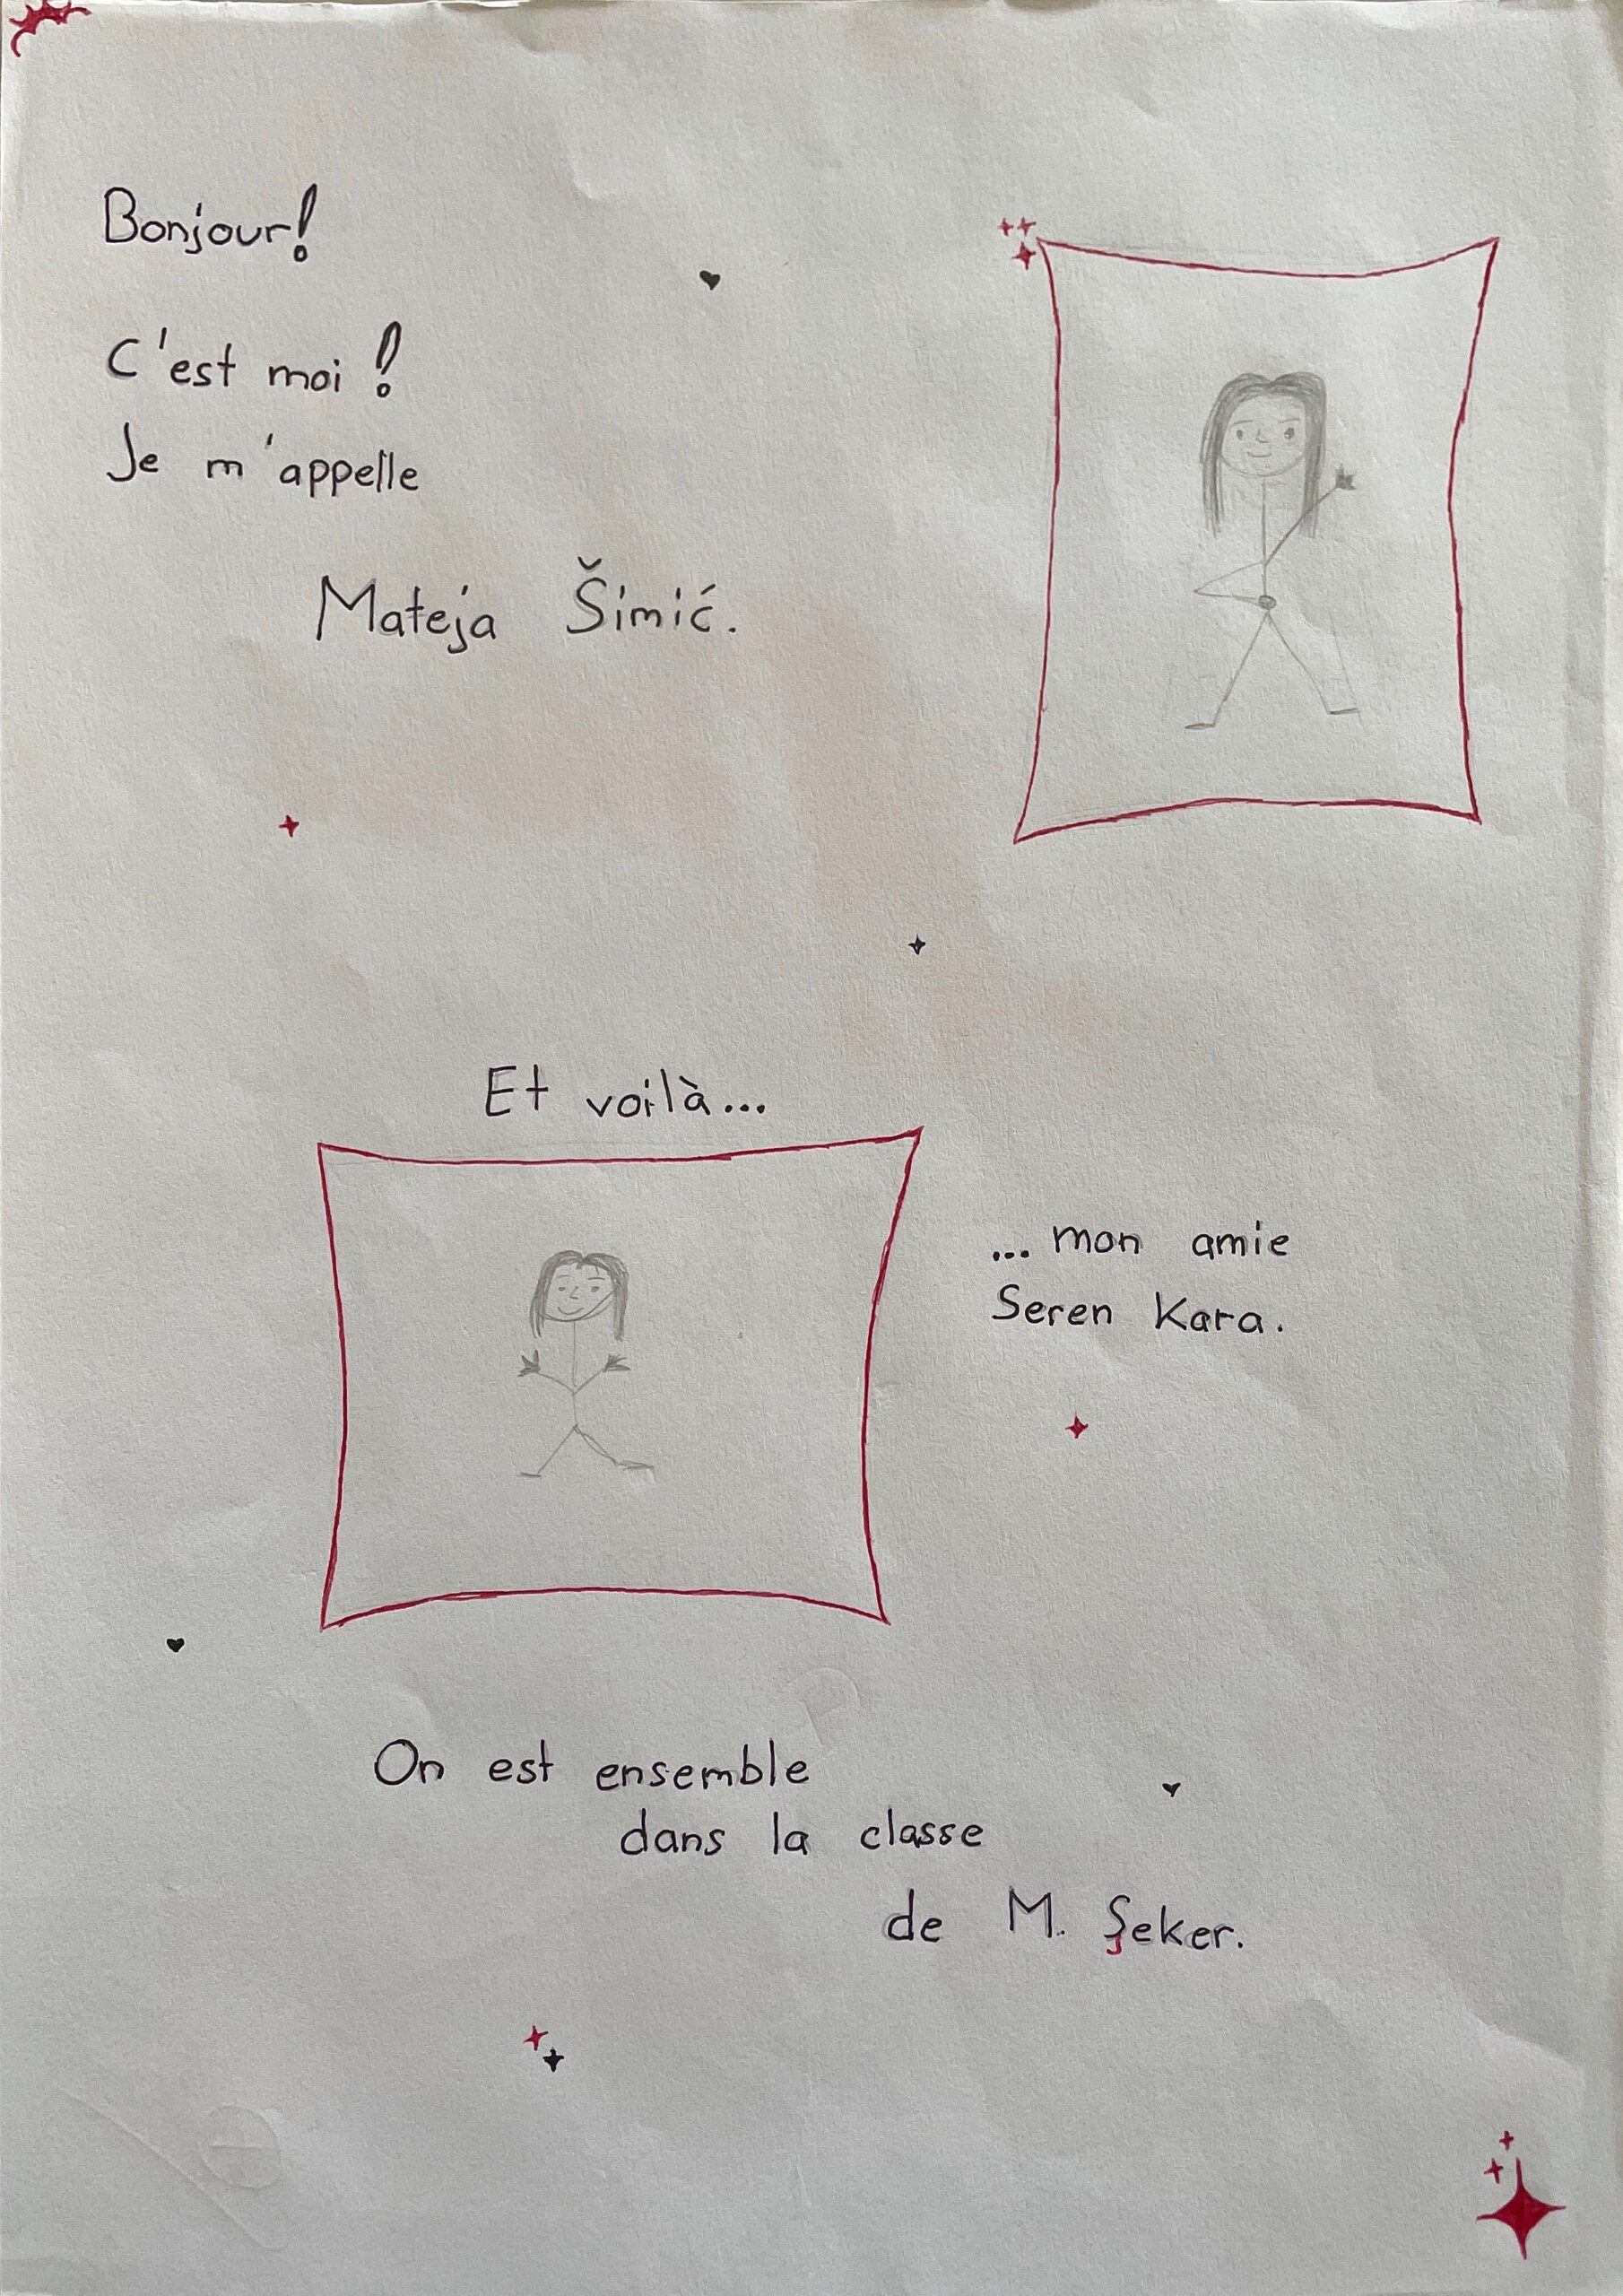 Bonjour!
C'est moi !
Je m'appelle
Mateja Šimić.
Et voilà...
... mon amie
Seren Kara.
On est ensemble
dans la classe
de M. Şeker.